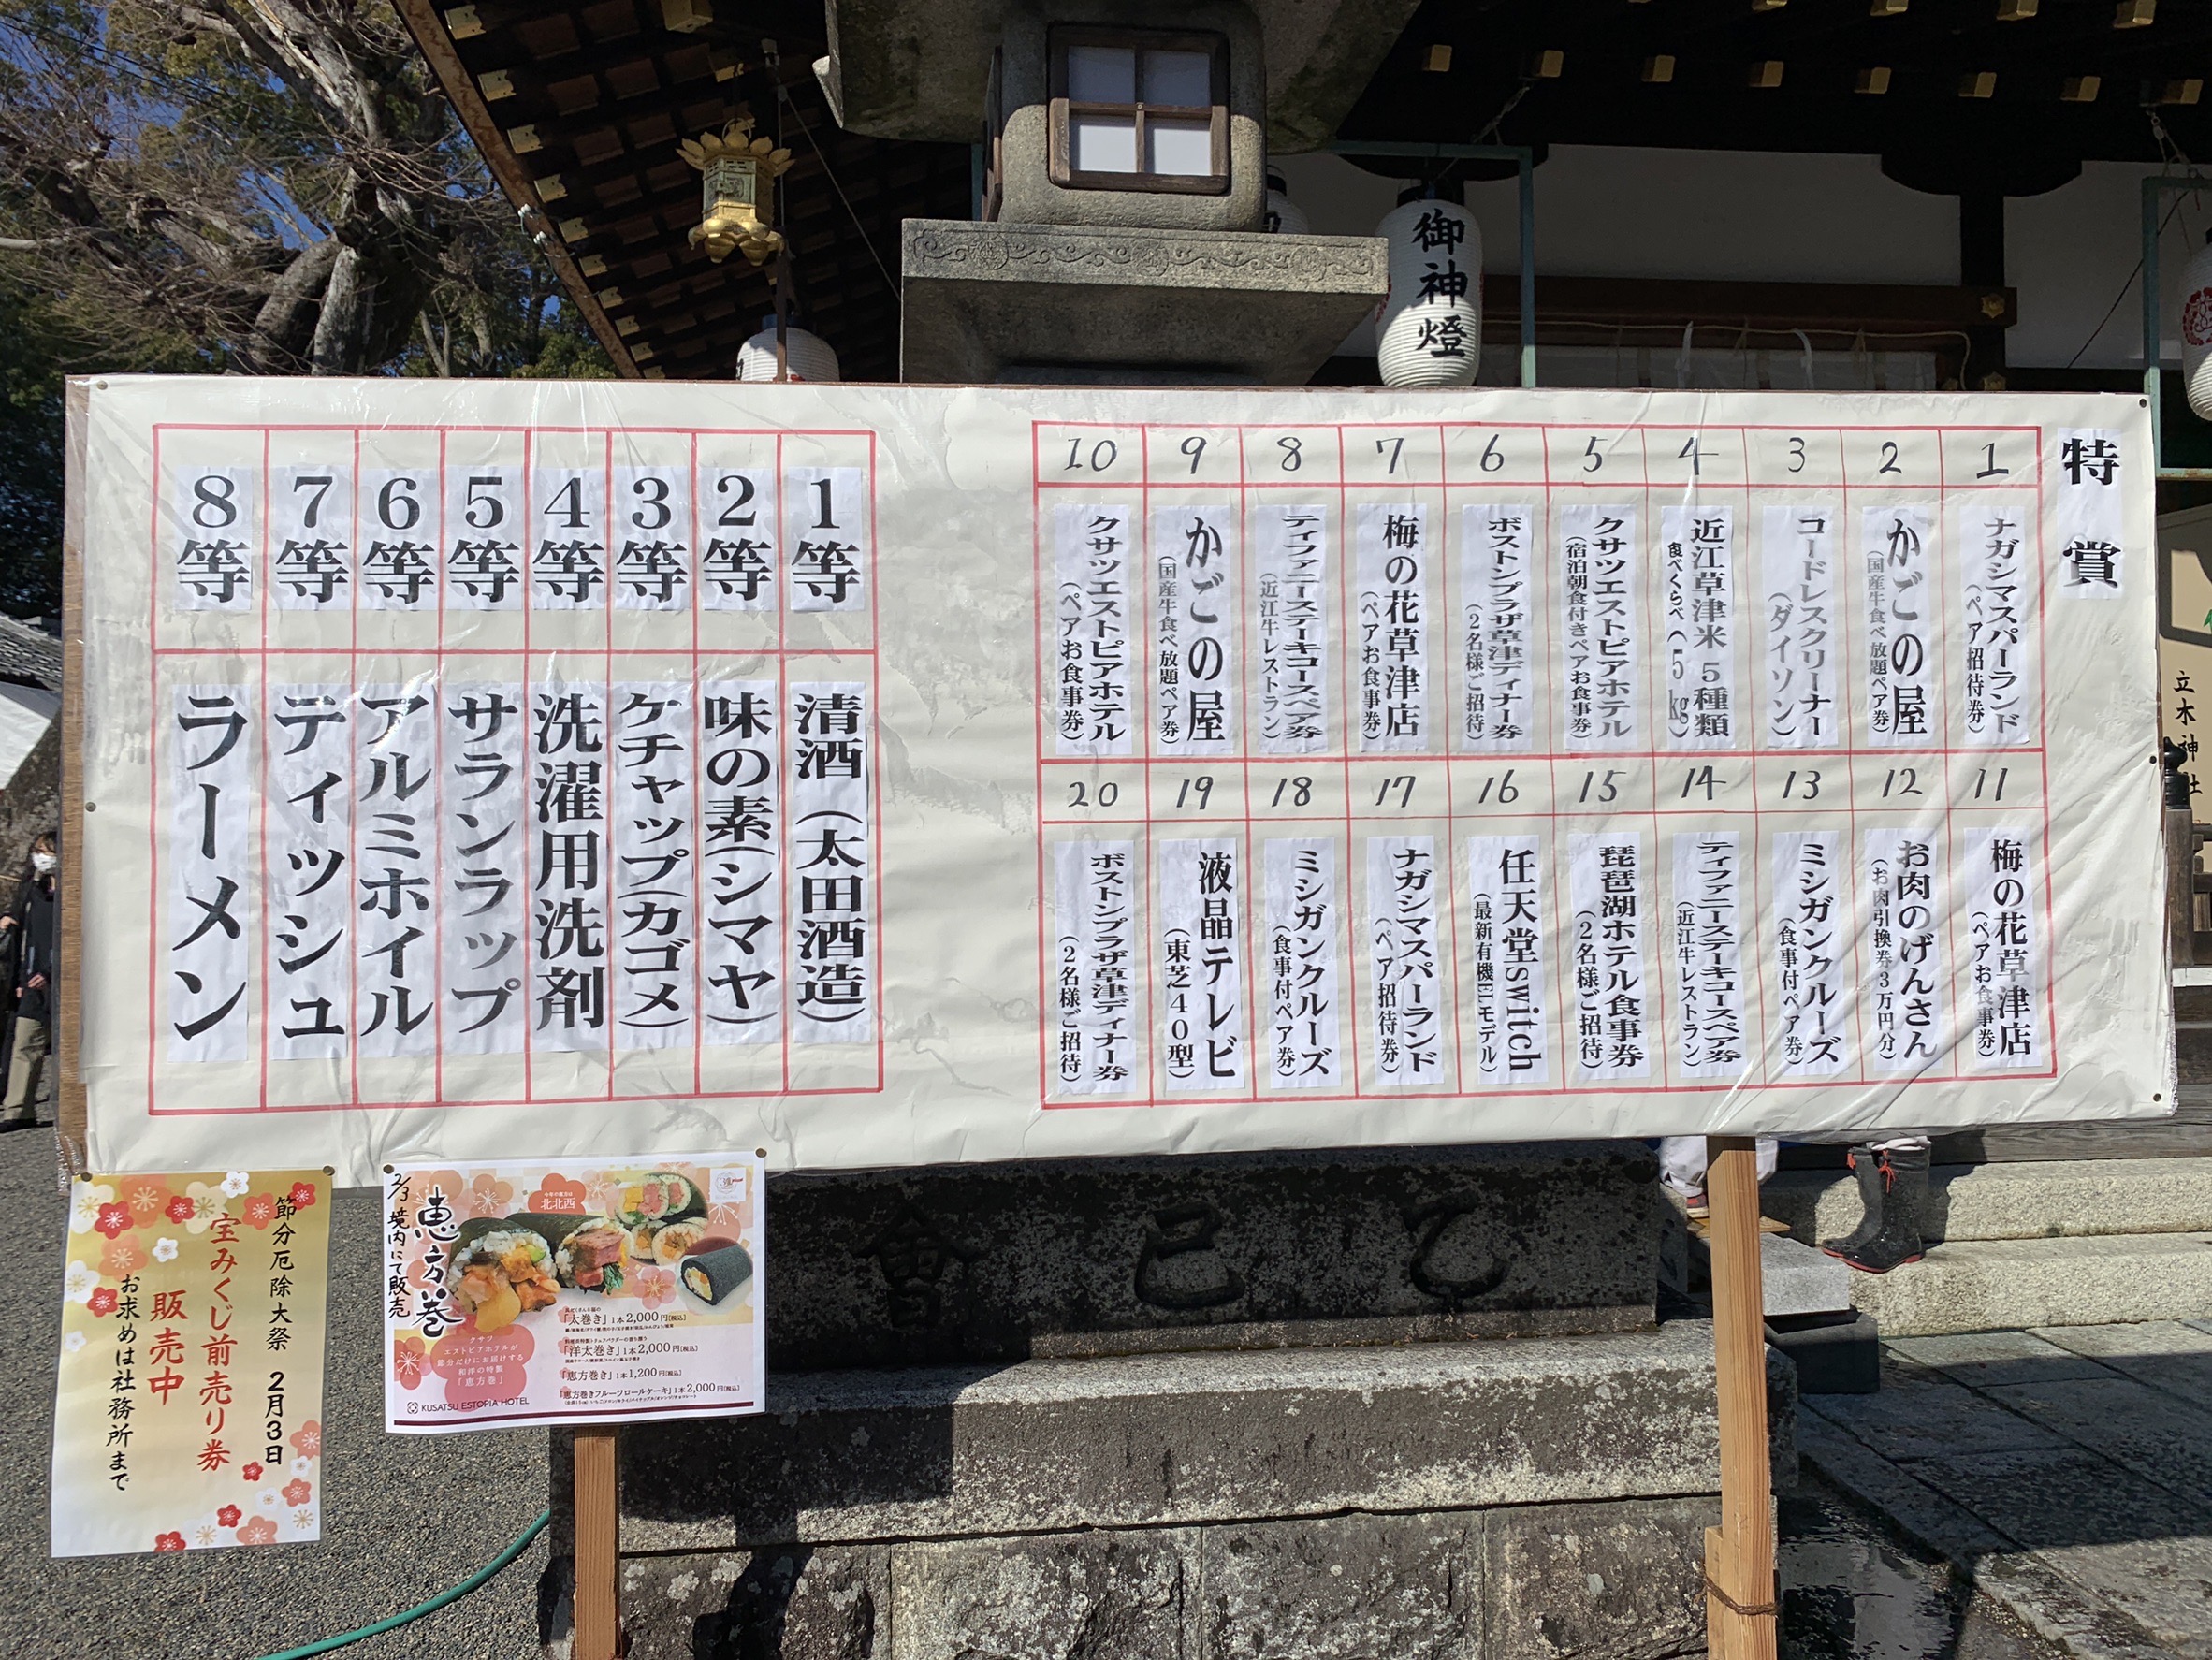 御神燈
特賞
1
ナガシマスパーランド
(ペア招待券)
2
かごの屋
(国産牛食べ放題ペア券)
3
コードレスクリーナー
(ダイソン)
4
近江草津米5種類
食べくらべ(5kg)
5
クサツエストピアホテル
(宿泊朝食付きペアお食事券)
6
ボストンプラザ草津ディナー券
(2名様ご招待)
7
梅の花草津店
(ペアお食事券)
8
ティファニーステーキコースペア券
(近江牛レストラン)
9
かごの屋
(国産牛食べ放題ペア券)
10
クサツエストピアホテル
(ペアお食事券)
11
梅の花草津店
(ペアお食事券)
12
お肉のげんさん
(お肉引換券3万円分)
13
ミシガンクルーズ
(食事付ペア券)
14
ティファニーステーキコースペア券
(近江牛レストラン)
15
琵琶湖ホテル食事券
(2名様ご招待)
16
任天堂switch
(最新有機ELモデル)
17
ナガシマスパーランド
(ペア招待券)
18
ミシガンクルーズ
(食事付ペア券)
19
液晶テレビ
(東芝40型)
20
ボストンプラザ草津ディナー券
(2名様ご招待)
1等
清酒(太田酒造)
2等
味の素(シマヤ)
3等
ケチャップ(カゴメ)
4等
洗濯用洗剤
5等
サランラップ
6等
アルミホイル
7等
ティッシュ
8等
ラーメン
立木神社
節分厄除大祭 2月3日
宝みくじ前売り券
販売中
お求めは社務所まで
2/3 境内にて販売
恵方巻
今年の恵方は
北北西
「太巻き」1本2,000円[税込]
「洋太巻き」1本2,000円[税込]
「恵方巻き」1本1,200円[税込]
「恵方巻きフルーツロールケーキ」1本2,000円[税込]
クサツ
エストピアホテルが
節分だけにお届けする
和洋の特製
「恵方巻」
KUSATSU ESTOPIA HOTEL